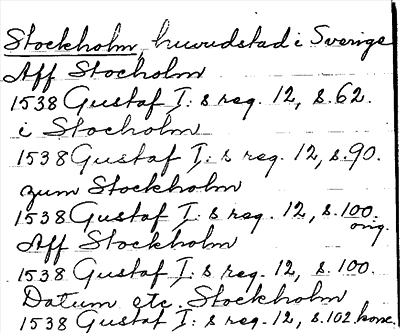 Stockholm, huvudstad i Sverige
Aff Stocholm
1538 Gustaf I: s reg. 12, s. 62.
i Stocholm
1538 Gustaf I: s reg. 12, s. 90.
zum Stockholm
1538 Gustaf I: s reg. 12, s. 100.
orig.
Aff Stockholm
1538 Gustaf I: s reg. 12, s. 100.
Datum etc. Stockholm
1538 Gustaf I: s reg. 12, s. 102 konc.